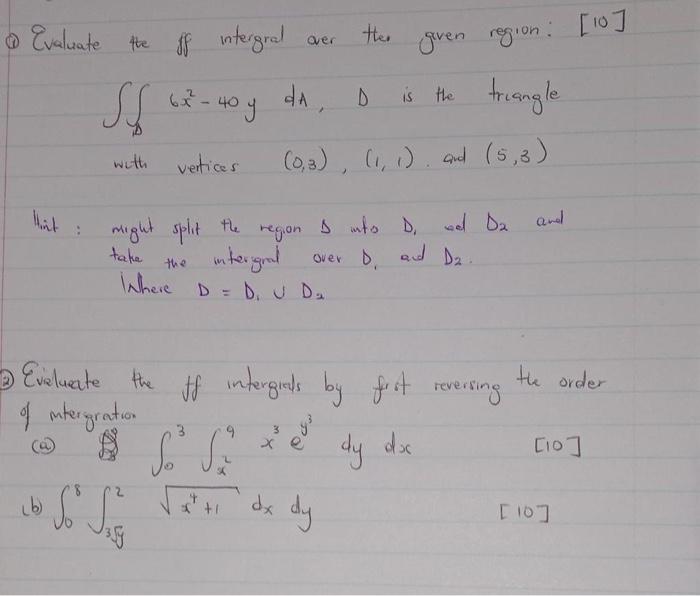 ① Evaluate the ff intergral over the given region: [10]
∬_D 6x² - 40y dA, D is the triangle
with vertices (0,3), (1,1). and (5,3)
Hint : might split the region D into D₁ and D₂ and
take the intergral over D₁ and D₂.
Where D = D₁ ∪ D₂
② Eveluate the ff intergrals by first reversing the order
of intergration
(a) ∫₀³ ∫_{x²}^9 x³ e^{y³} dy dx [10]
(b) ∫₀⁸ ∫_{³√y}^2 √(x⁴+1) dx dy [10]